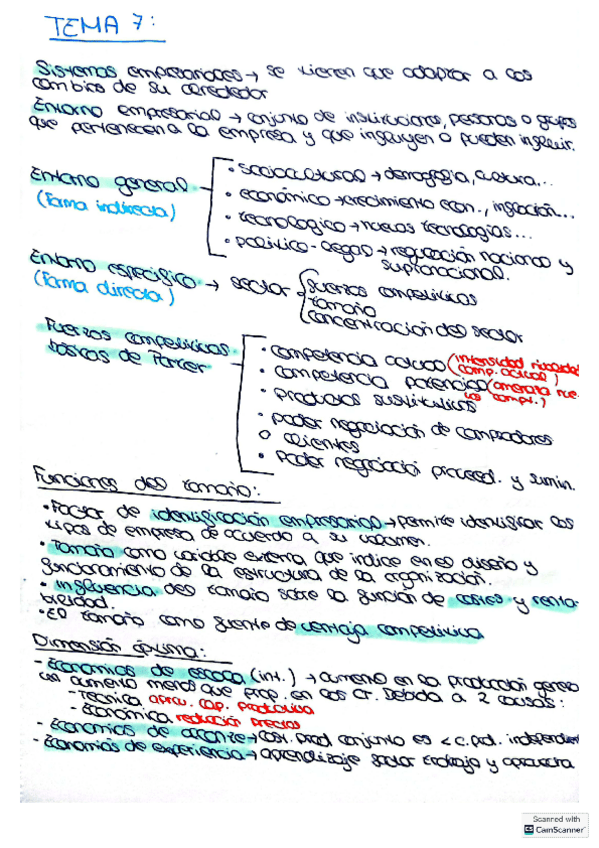 TEMA 7:
Sistemas empresariales → se tienen que adaptar a los
cambios de su alrededor
Entorno empresarial → conjunto de instituciones, personas o grupos
que pertenecen a la empresa y que influyen o pueden influir.
Entorno general
(Forma indirecta)
• sociocultural → demografía, cultura...
• económico → crecimiento econ., inflación...
• tecnologico → nuevas tecnologías...
• político-legal → regulación nacional y
supranacional.
Entorno específico → sector
(Forma directa)
fuerzas competitivas
tamaño
concentración del sector
Fuerzas competitivas
básicas de Porter
• competencia actual (intensidad rivalidad
comp. actual)
• competencia potencial (amenaza nue-
vos compt.)
• productos sustitutivos
• poder negociación de compradores
o clientes
• Poder negociación proveed. y sumin.
Funciones del tamaño:
• Factor de identificación empresarial → permite identificar los
tipos de empresa de acuerdo a su volumen.
• Tamaño como variable externa que indice en el diseño y
funcionamiento de la estructura de la organización.
• Influencia del tamaño sobre la función de costes y renta-
bilidad.
• El tamaño como fuente de ventaja competitiva
Dimensión óptima:
- Economías de escala (int.) → aumento en la producción genera
un aumento menos que prop. en los CT. Debida a 2 causas:
- Técnica aprov. cap. productiva
- Económica reducción precios
- Economías de alcance → cost. prod conjunto es < c. pd. independient
- Economías de experiencia → aprendizaje factor trabajo y aprovecha
Scanned with
CamScanner